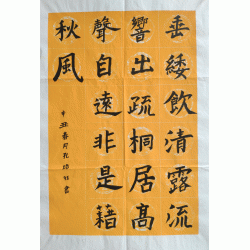 垂緌飲清露流
響出疏桐居高
聲自遠非是藉
秋風
辛丑春月